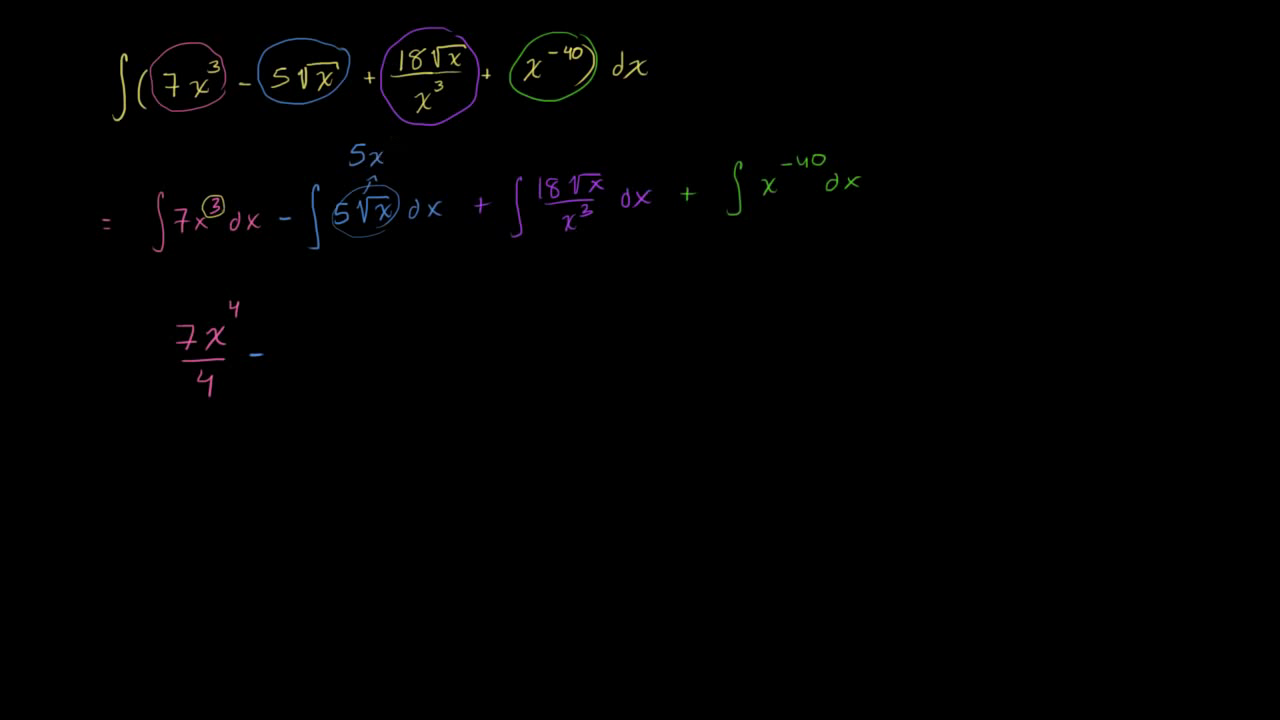 ∫(7x³ - 5√x + 18√x/x³ + x⁻⁴⁰) dx
5x
= ∫7x³dx - ∫5√x dx + ∫18√x/x³ dx + ∫x⁻⁴⁰dx
7x⁴/4 -